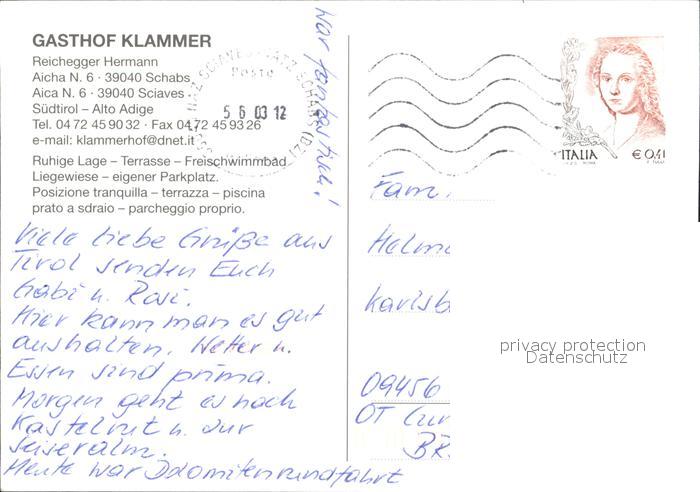 GASTHOF KLAMMER
Reichegger Hermann
Aicha N. 6 · 39040 Schabs
Aica N. 6 · 39040 Sciaves
Südtirol – Alto Adige
Tel. 04 72 45 90 32 · Fax 04 72 45 93 26
e-mail: klammerhof@dnet.it
Ruhige Lage – Terrasse – Freischwimmbad
Liegewiese – eigener Parkplatz.
Posizione tranquilla – terrazza – piscina
prato a sdraio – parcheggio proprio.
Viele liebe Grüße aus
Tirol senden Euch
Gabi u. Rosi.
Hier kann man es gut
aushalten. Wetter u.
Essen sind prima.
Morgen geht es nach
Kastelrut u. zur
Seiseralm.
Heute war Dolomitenrundfahrt
war fantastisch!
Poste
5 6 03 12
ITALIA
€ 0,41
Fam.
Helm
Karlsb
09456
OT Cun
BR
privacy protection
Datenschutz